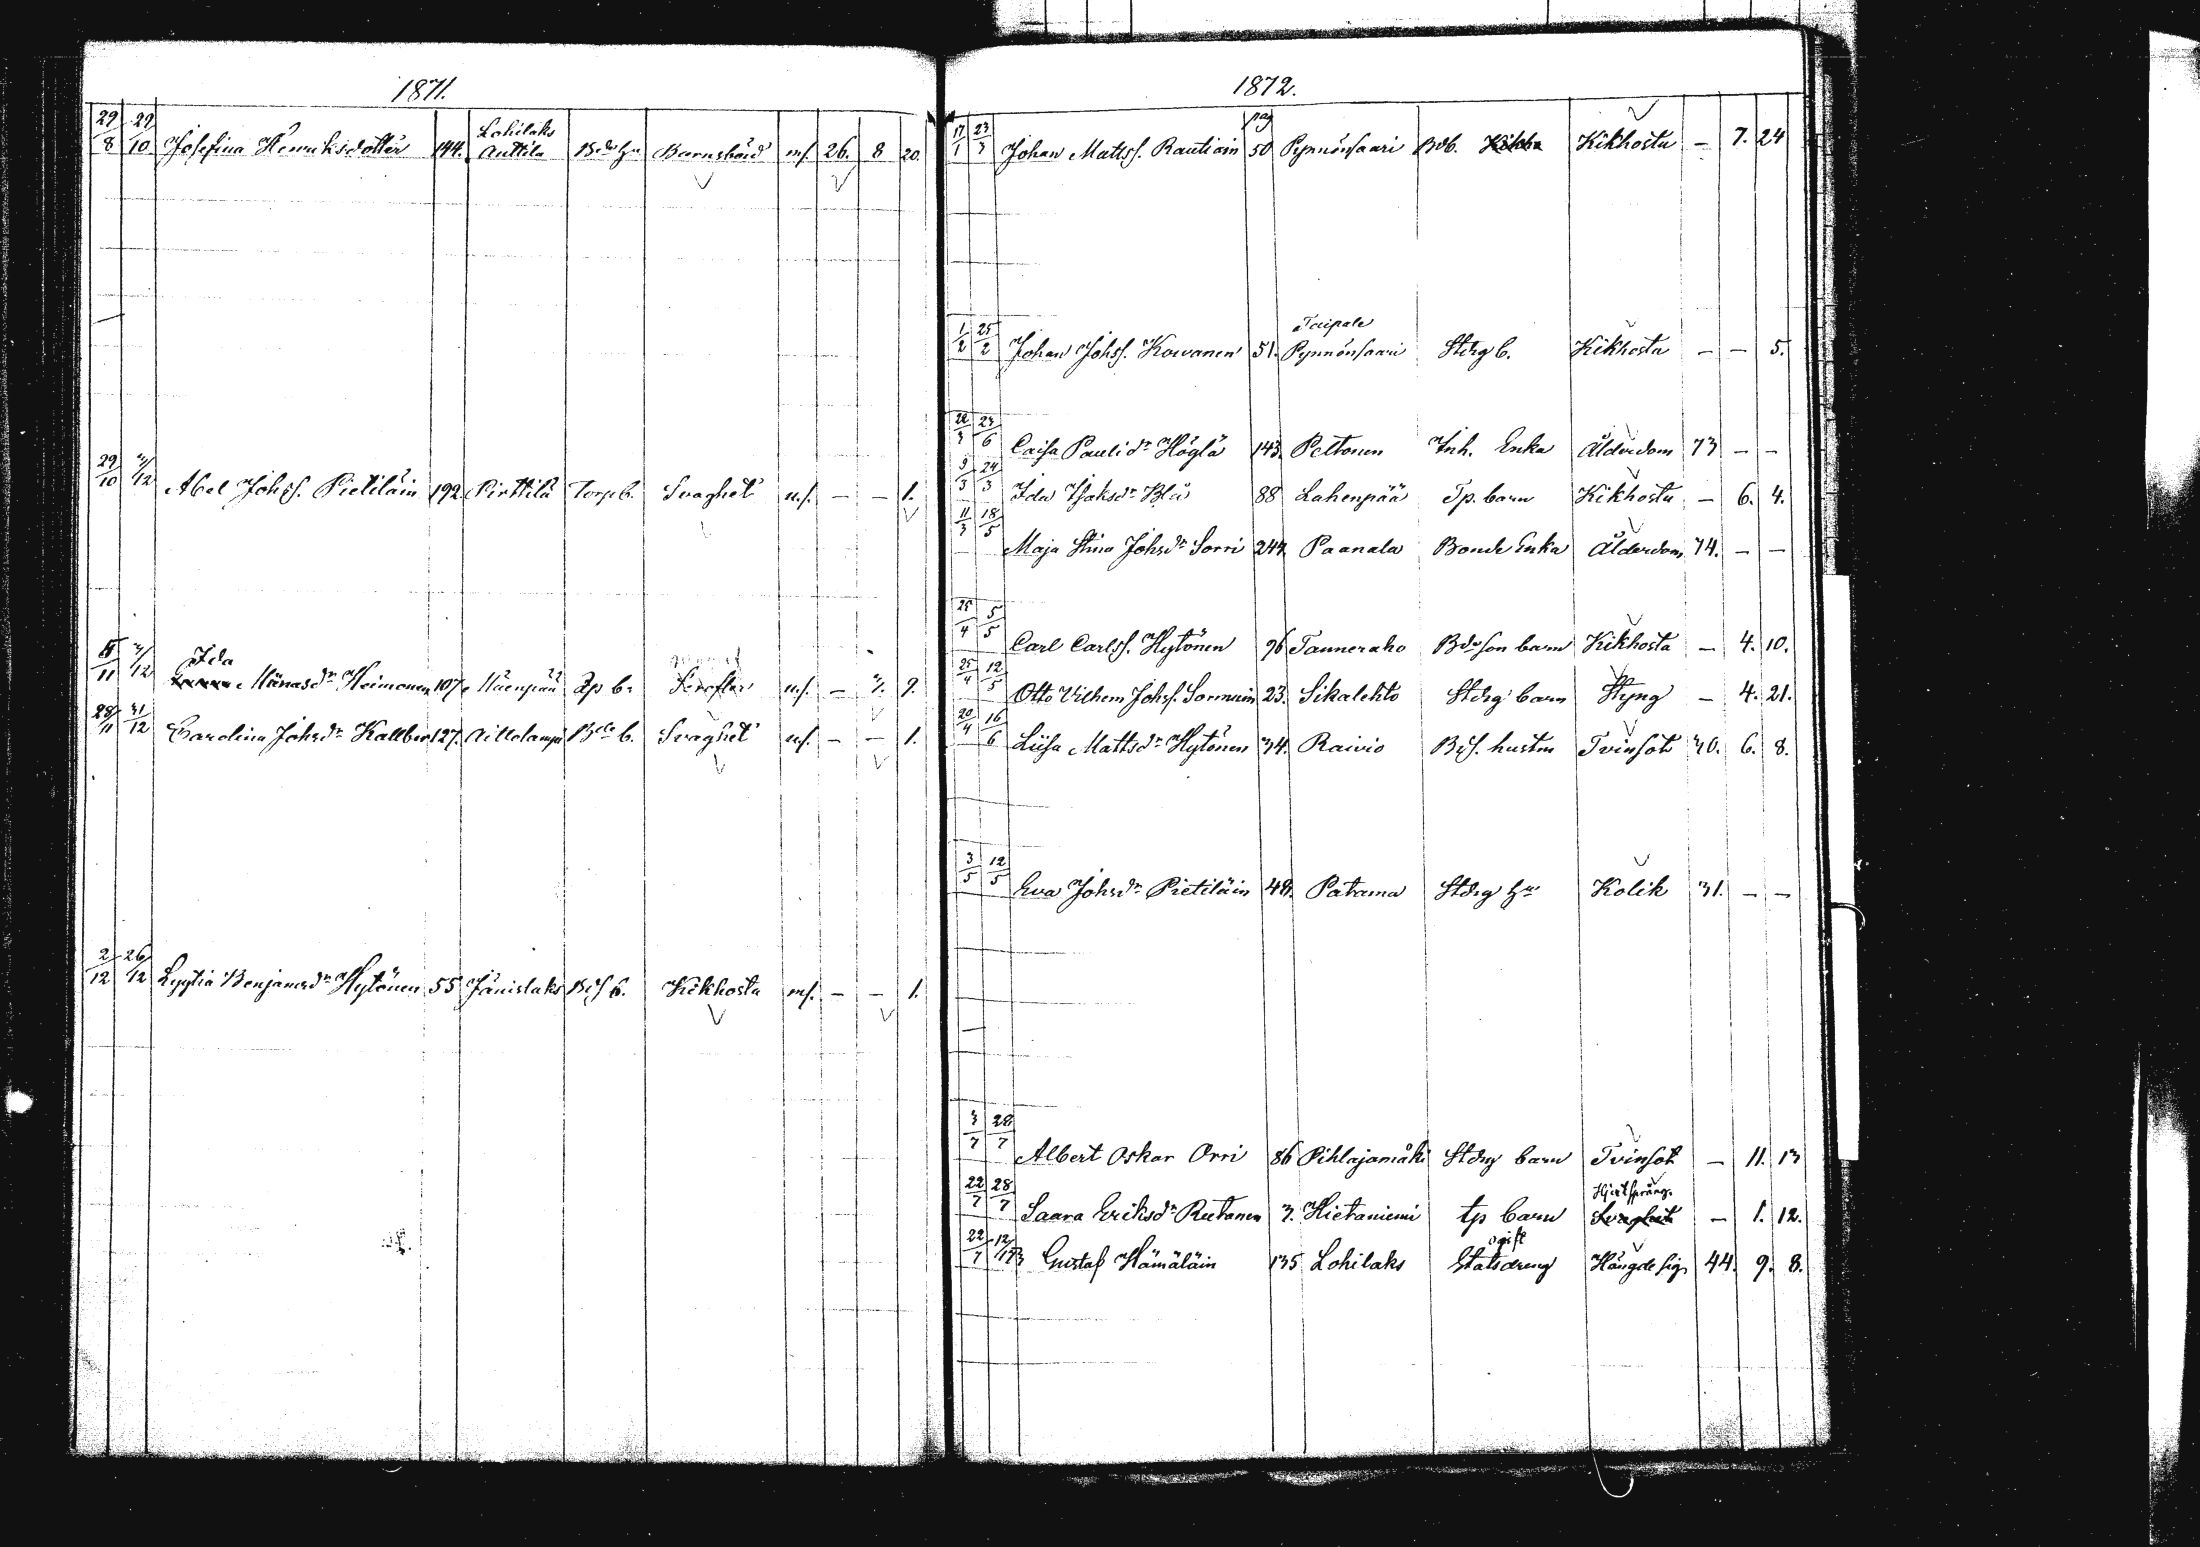 1871.
29/8 29/10 Josefina Henriksdotter 144. Lohilaks Anttila Barnsbörd nf. 26. 8 20.
29/10 3/12 Abel Johsf. Pietiläin 192 Pirttilä Torp b. Svaghet nf. — — 1.
5/11 3/12 Ida Månasdr Heimonen 107 Mäenpää Tp b. Scrofler nf. — 7. 9.
28/11 31/12 Carolina Johsdr Kallber 127. Aittolampi Bde b. Svaghet nf. — — 1.
2/12 26/12 Lyytia Benjamsdr Hytönen 55 Jänislaks b. Kikhosta nf. — — 1.
1872.
pag
17/1 23/3 Johan Mattsf. Rautiain 50 Pynnönsaari Bdb. Kikhosta — 7. 24
Taipale
1/2 25/2 Johan Johsf. Kowanen 51. Pynnönsaari Stdrg b. Kikhosta — — 5.
22/3 23/6 Caisa Paulidr Höglä 143. Peltonen Inh. Enka Ålderdom 73 — —
9/3 24/3 Ida Isaksdr Blå 88 Lahenpää Tp. barn Kikhosta — 6. 4.
11/3 18/5 Maja Stina Johsdr Sorri 244 Paanala Bonde Enka Ålderdom 74. — —
25/4 5/5 Carl Carlsf. Hytönen 96 Tanneraho Bdeson barn Kikhosta — 4. 10.
25/4 12/5 Otto Vilhem Johsf. Sormuin 23. Sikalehto Stdrg barn Styng — 4. 21.
20/4 16/6 Liisa Mattsdr Hytönen 34. Raivio hustru Tvinsot 30. 6. 8.
3/5 12/5 Eva Johsdr Pietiläin 48. Patama Stdrg hu Kolik 31. — —
3/7 28/7 Albert Oskar Orri 86 Pihlajamäki Stdrg barn Tvinsot — 11. 13
Hjertspräng.
22/7 28/7 Saara Eriksdr Rutanen 3. Hietaniemi tp barn Svaghet — 1. 12.
ogift
22/7 Gustaf Hämäläin 135 Lohilaks Statsdreng Hängde sig 44. 9. 8.